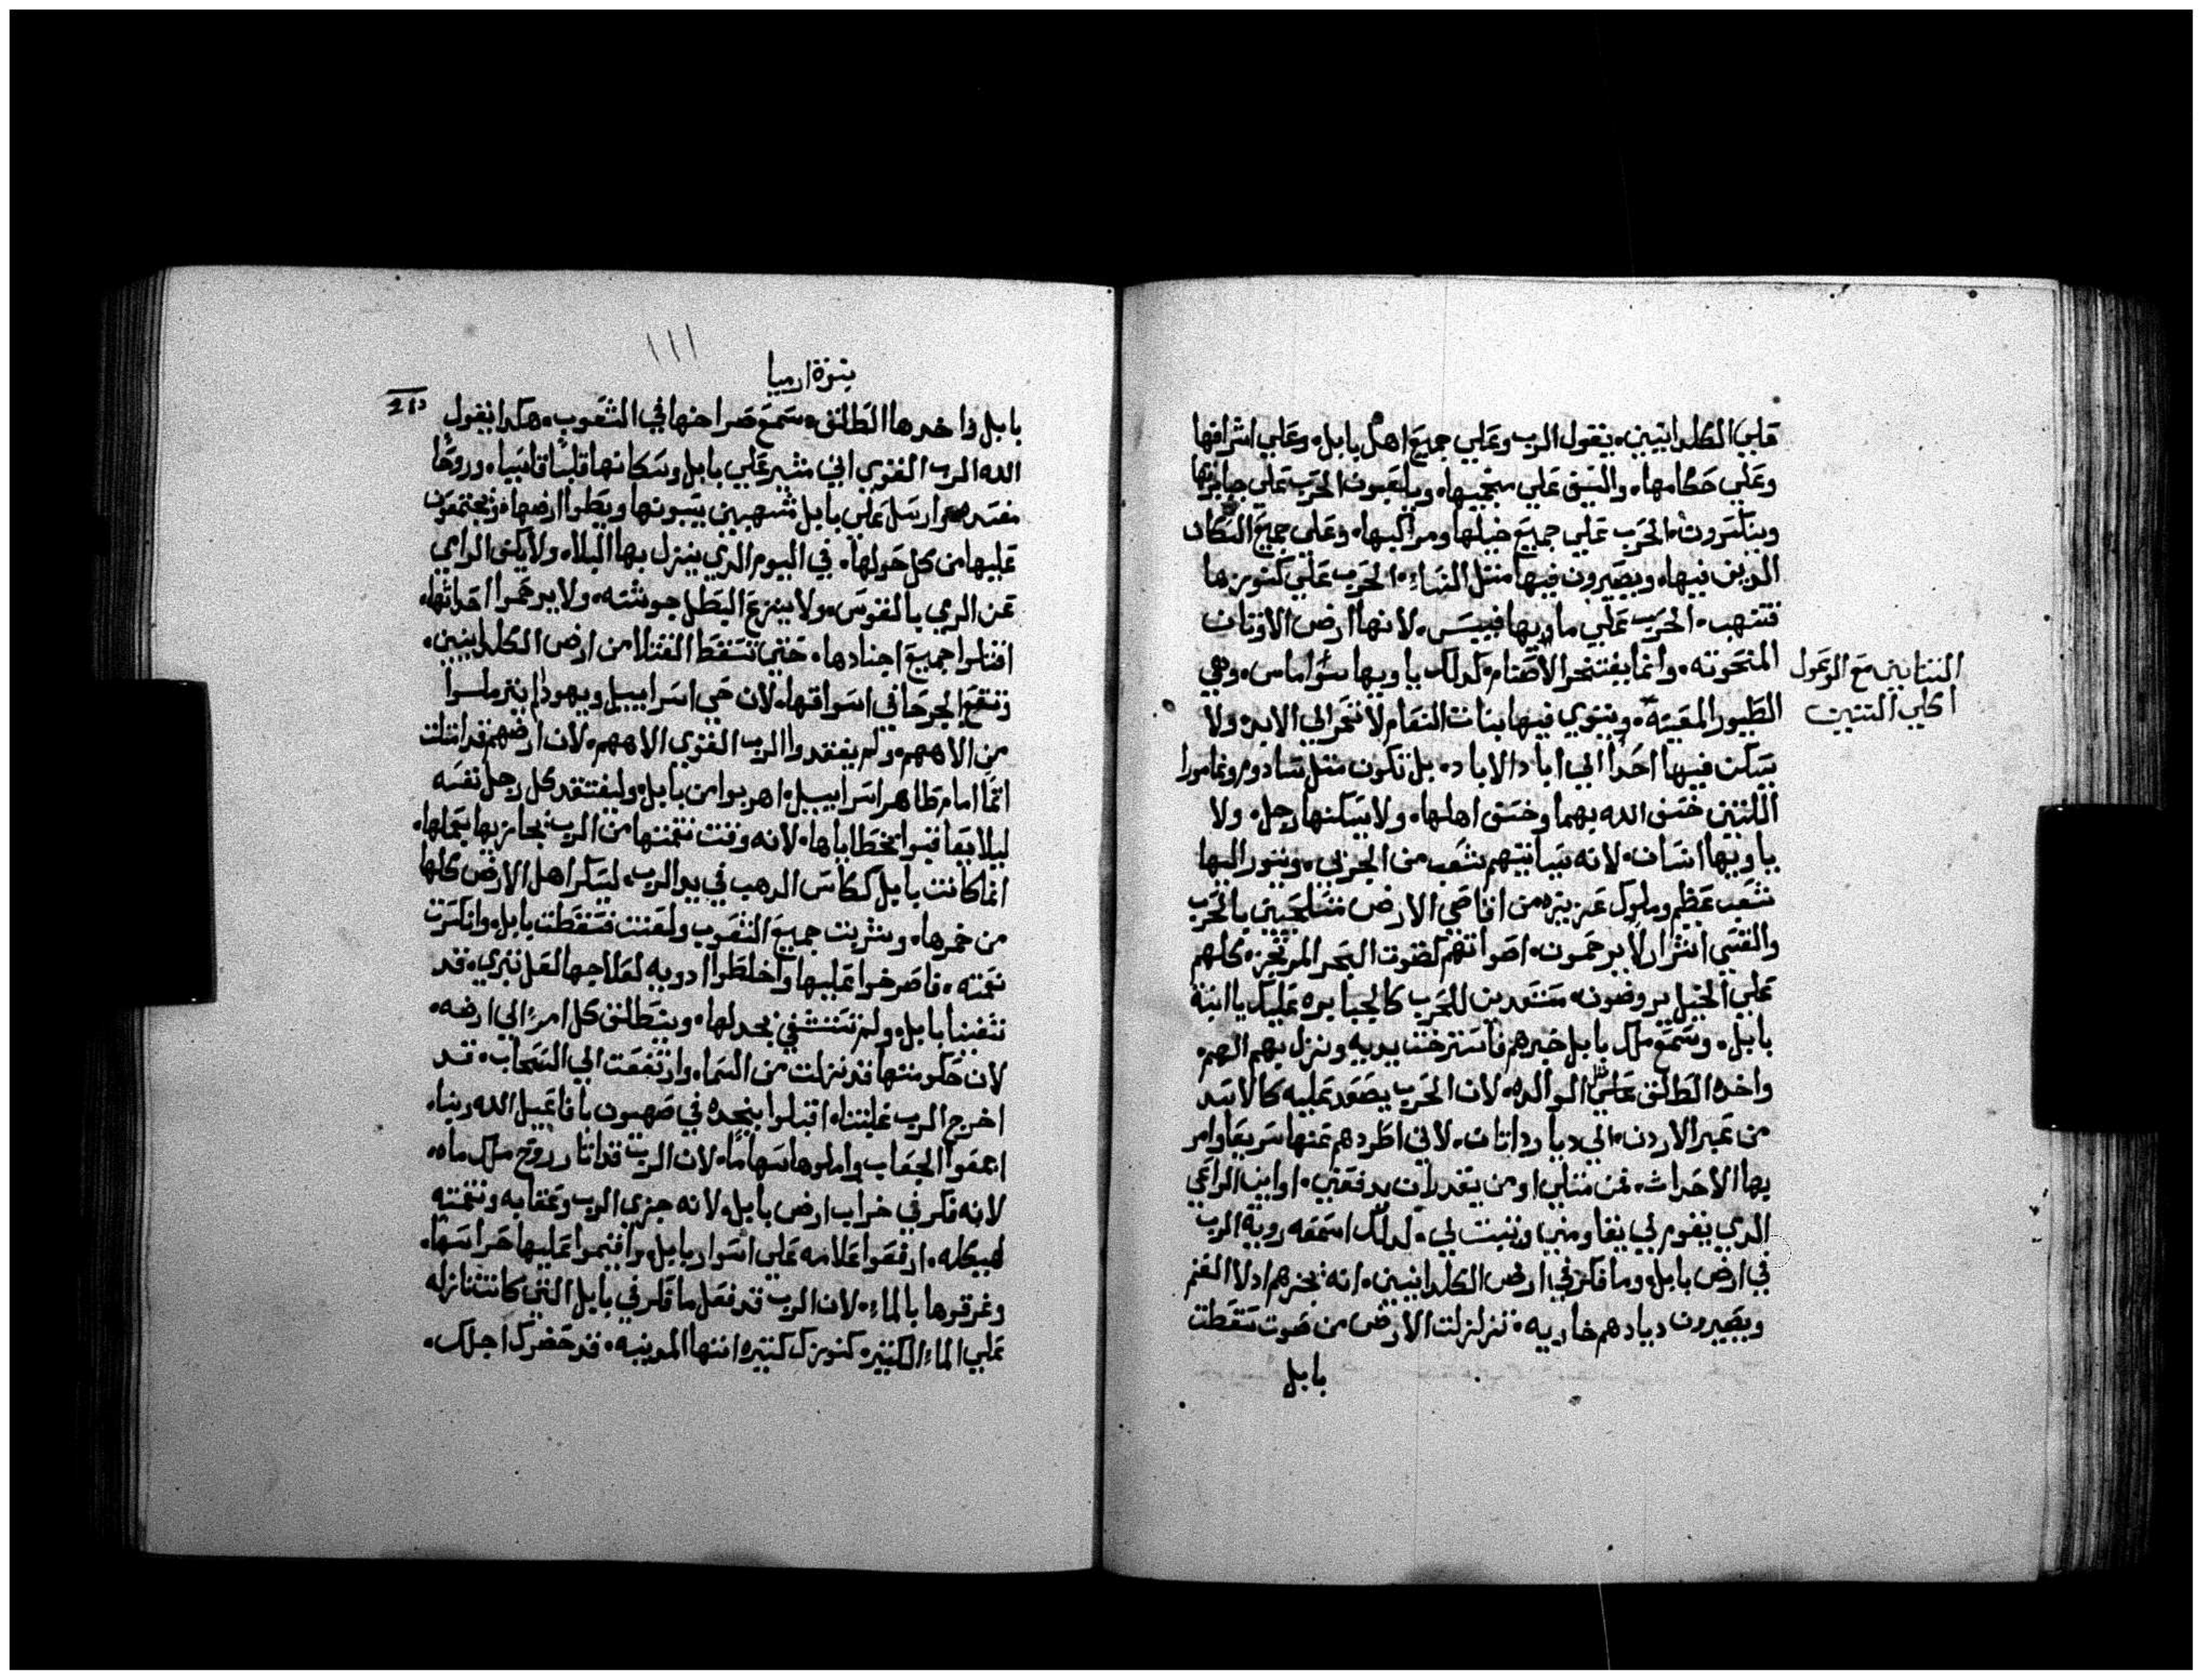 علي الكلدانيين، يقول الرب وعلي جميع اهل بابل، وعلي اشرافها
وعلي حكامها، والسيف علي منجميها، ويلعبون الحرب علي جبابرتها
وينكسرون، الحرب علي جميع خيلها ومراكبها، وعلي جميع السكان
الدين فيها، ويصيرون فيها متل النساء، الحرب علي كنوزها
فتنهب، الحرب علي ماويها فييبس، لانها ارض الاوتان
المنحوته، وانما يفتخر الاصنام، كدلك ياويها سواماس، وهي
التنانين مع الوعول
اكلي التين
الطيور المغيبة، ويتوي فيها بنات النعام لا تعمر الي الابد، ولا
يسكن فيها احدا الي اباد الاباد، بل تكون متل سادوم وغامورا
اللتين خسف الله بهما وخسف اهلها، ولا يسكنها رجل، ولا
ياويها انسان، لانه سياتيهم شعب من الجربي، ويتور اليها
شعب عظيم وملوك عزيزه من اقاصي الارض متسلحين بالحرب
والقسي اشرار لا يرحمون، اصواتهم كصوت البحر المرتجز، كلهم
علي الخيل يروضون، مستعدين للحرب كالجبابره عليك يا ابنة
بابل، وسمع ملك بابل خبرهم فاسترخت يديه ونزل بهم الهم،
واخده الطلق متل الوالده، لان الحرب يصعد عليه كالاسد
من عبر الاردن، الي ديار داتان، لاني اطردهم عنها سريعا وامر
بها الاحداث، فمن متلي او من يقدر ان يدفعني، او اين الراعي
الدي يقوم لي يقاومني ويتبت لي، لدلك اسمعه روية الرب
في ارض بابل، وما فكر في ارض الكلدانيين، انه يجرهم ادلا الغنم
ويصيرون ديارهم خاربه، تزلزلت الارض من صوت سقطت
بابل
نبوة ارميا
بابل واخدها الطلق، سمع صراخها في الشعوب، هكدا يقول
الله الرب القوي اني متير علي بابل وسكانها قلبا قاسيا، وروحا
مفسده وارسل علي بابل منتهبين يسبونها ويطوا ارضها، ويجتمعون
عليها من كل حولها، في اليوم الدي ينزل بها البلا، ولا يكف الرامي
عن الرمي بالقوس، ولا ينزع البطل جوشنه، ولا يرحموا احداتها،
اقتلوا جميع اجنادها، حتي تسقط القتلا من ارض الكلدانيين،
وتقع الجرحا في اسواقها، لان حي اسراييل ويهودا لم يترملوا
من الاههم، ولم يفتقدوا الرب القوي الاههم، لان ارضهم قد امتلت
اتما امام طاهر اسراييل، اهربوا من بابل، وليفتقد كل رجل نفسه
ليلا يعاقبوا بخطاياها، لانه وقت نقمتها من الرب يجازيها بعملها،
انما كانت بابل ككاس الدهب في يد الرب، ليسكر اهل الارض كلها
من خمرها، وشربت جميع الشعوب ولعنت فسقطت بابل، وانكسرت
نقمته، فاصرخوا عليها واخلطوا ادويه لعلاجها لعل تبري، قد
شفينا بابل، ولم تستشفي بحدلها، وينطلق كل امرء الي ارضه،
لان حكومتها قد نزلت من السما، وارتفعت الي السحاب، قد
اخرج الرب غلبتنا، اقبلوا بنجده في صهيون بافاعيل الله ربنا،
اعقوا الجعاب واملوها سهاما، لان الرب قد اتار روح ملك ماه،
لانه فكر في خراب ارض بابل، لانه جزي الرب وعقابه ونقمته
لهيكله، ارفعوا علامه علي اسوار بابل، واقيموا عليها حراسها،
وغرقوها بالماء، لان الرب قد فعل ما فكر في بابل التي كانت نازله
علي الماء الكتير، كنوزك كتيره ايتها المدينه، قد حضرك اجلك،